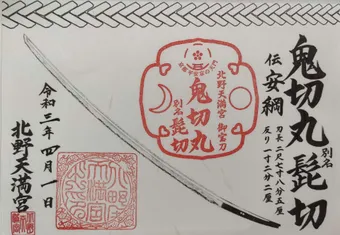 鬼切丸 別名 髭切
伝 安綱
刃長 二尺七寸八分五厘
反り 一寸二分二厘
北野天満宮 御宝刀
鬼切丸
別名
髭切
令和三年四月一日
北野天満宮